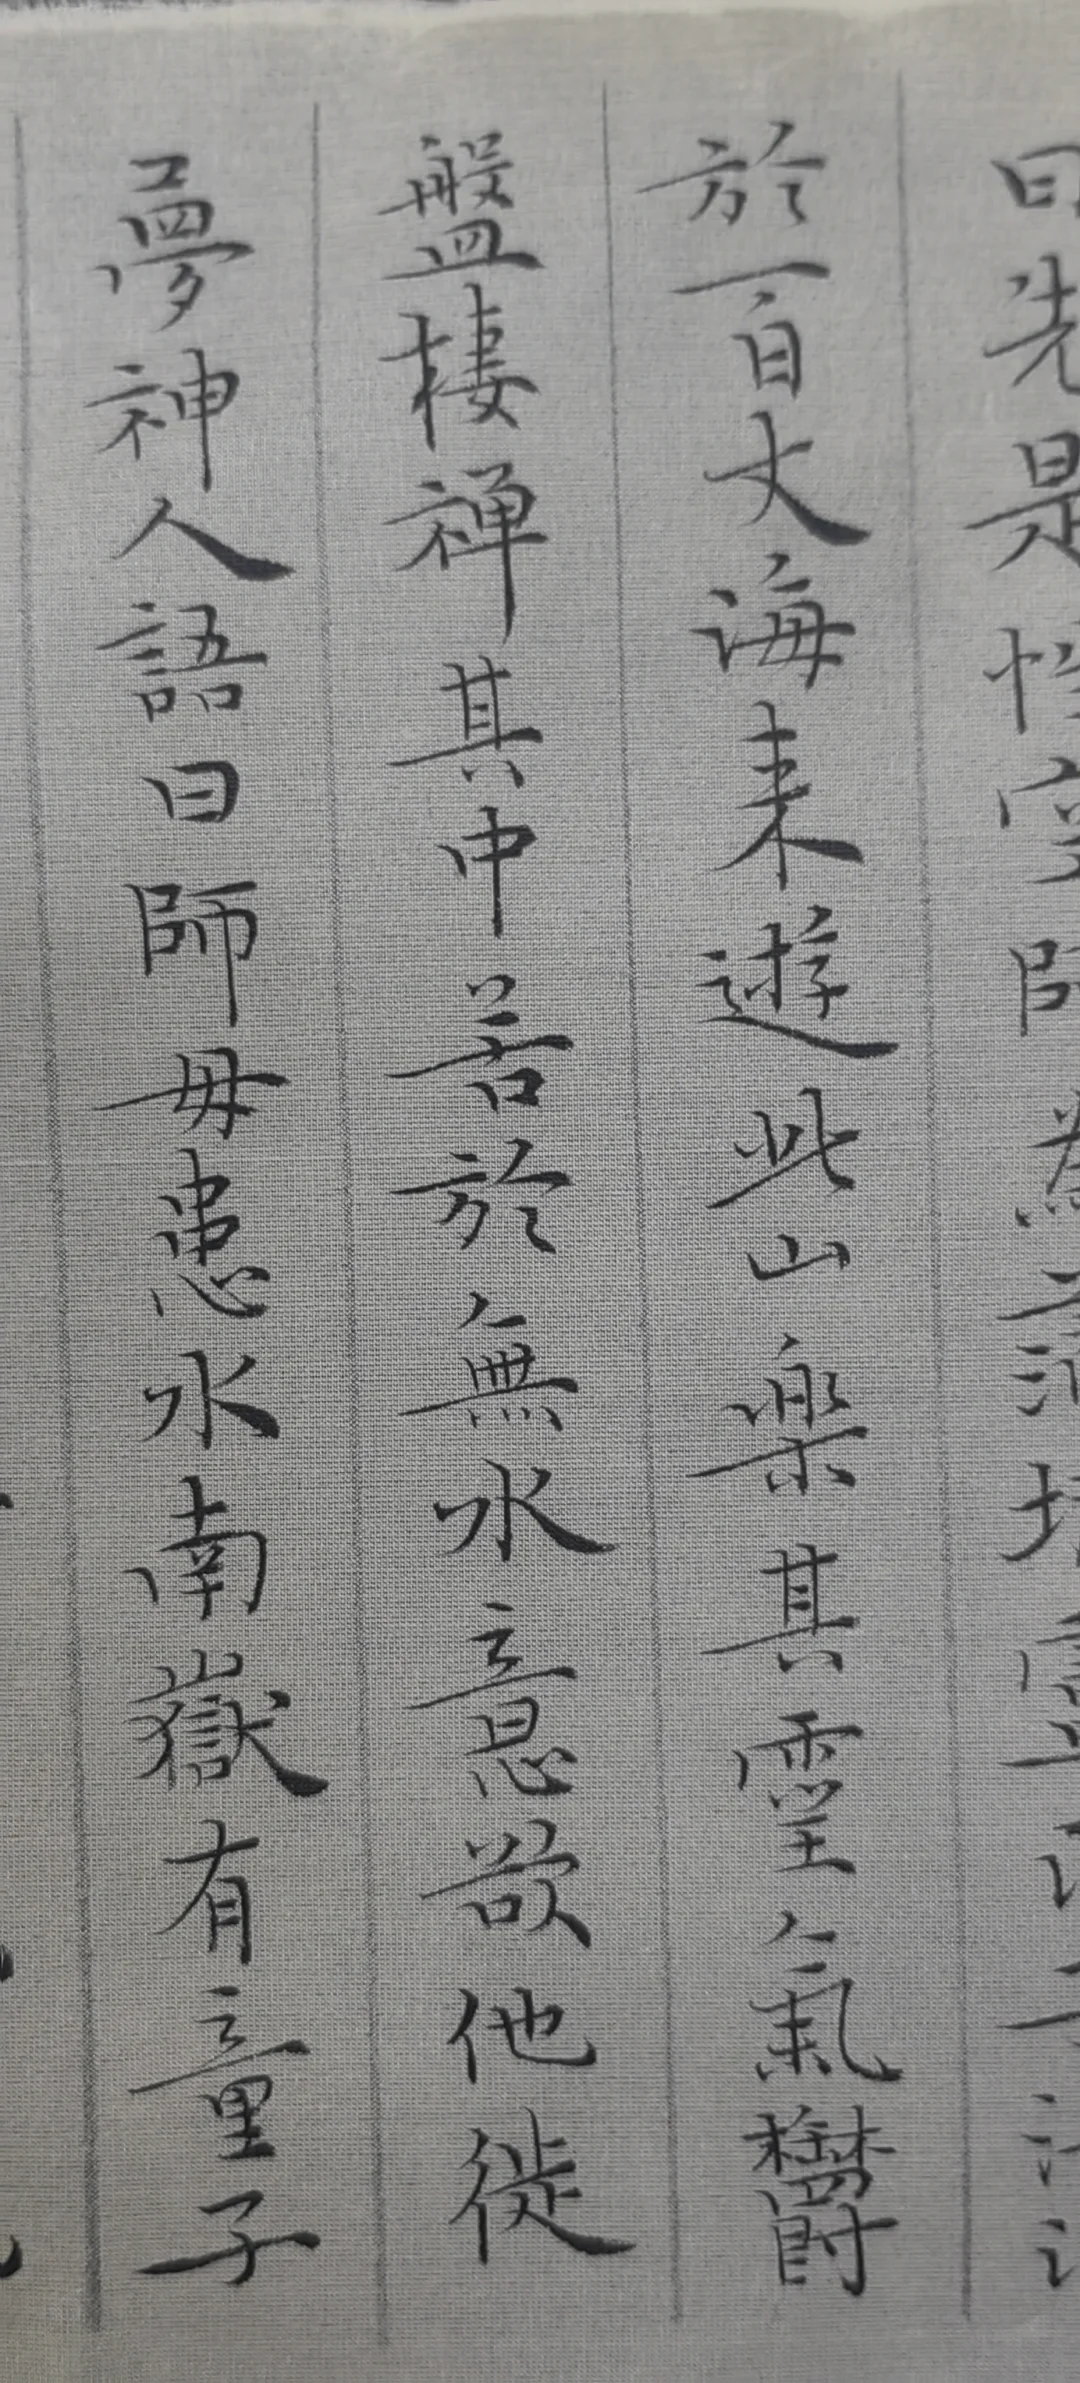 曰先是性空師為
於百丈海来遊此山樂其靈氣欝
盤棲禅其中苦於無水意欲他徙
夢神人語曰師毋患水南嶽有童子